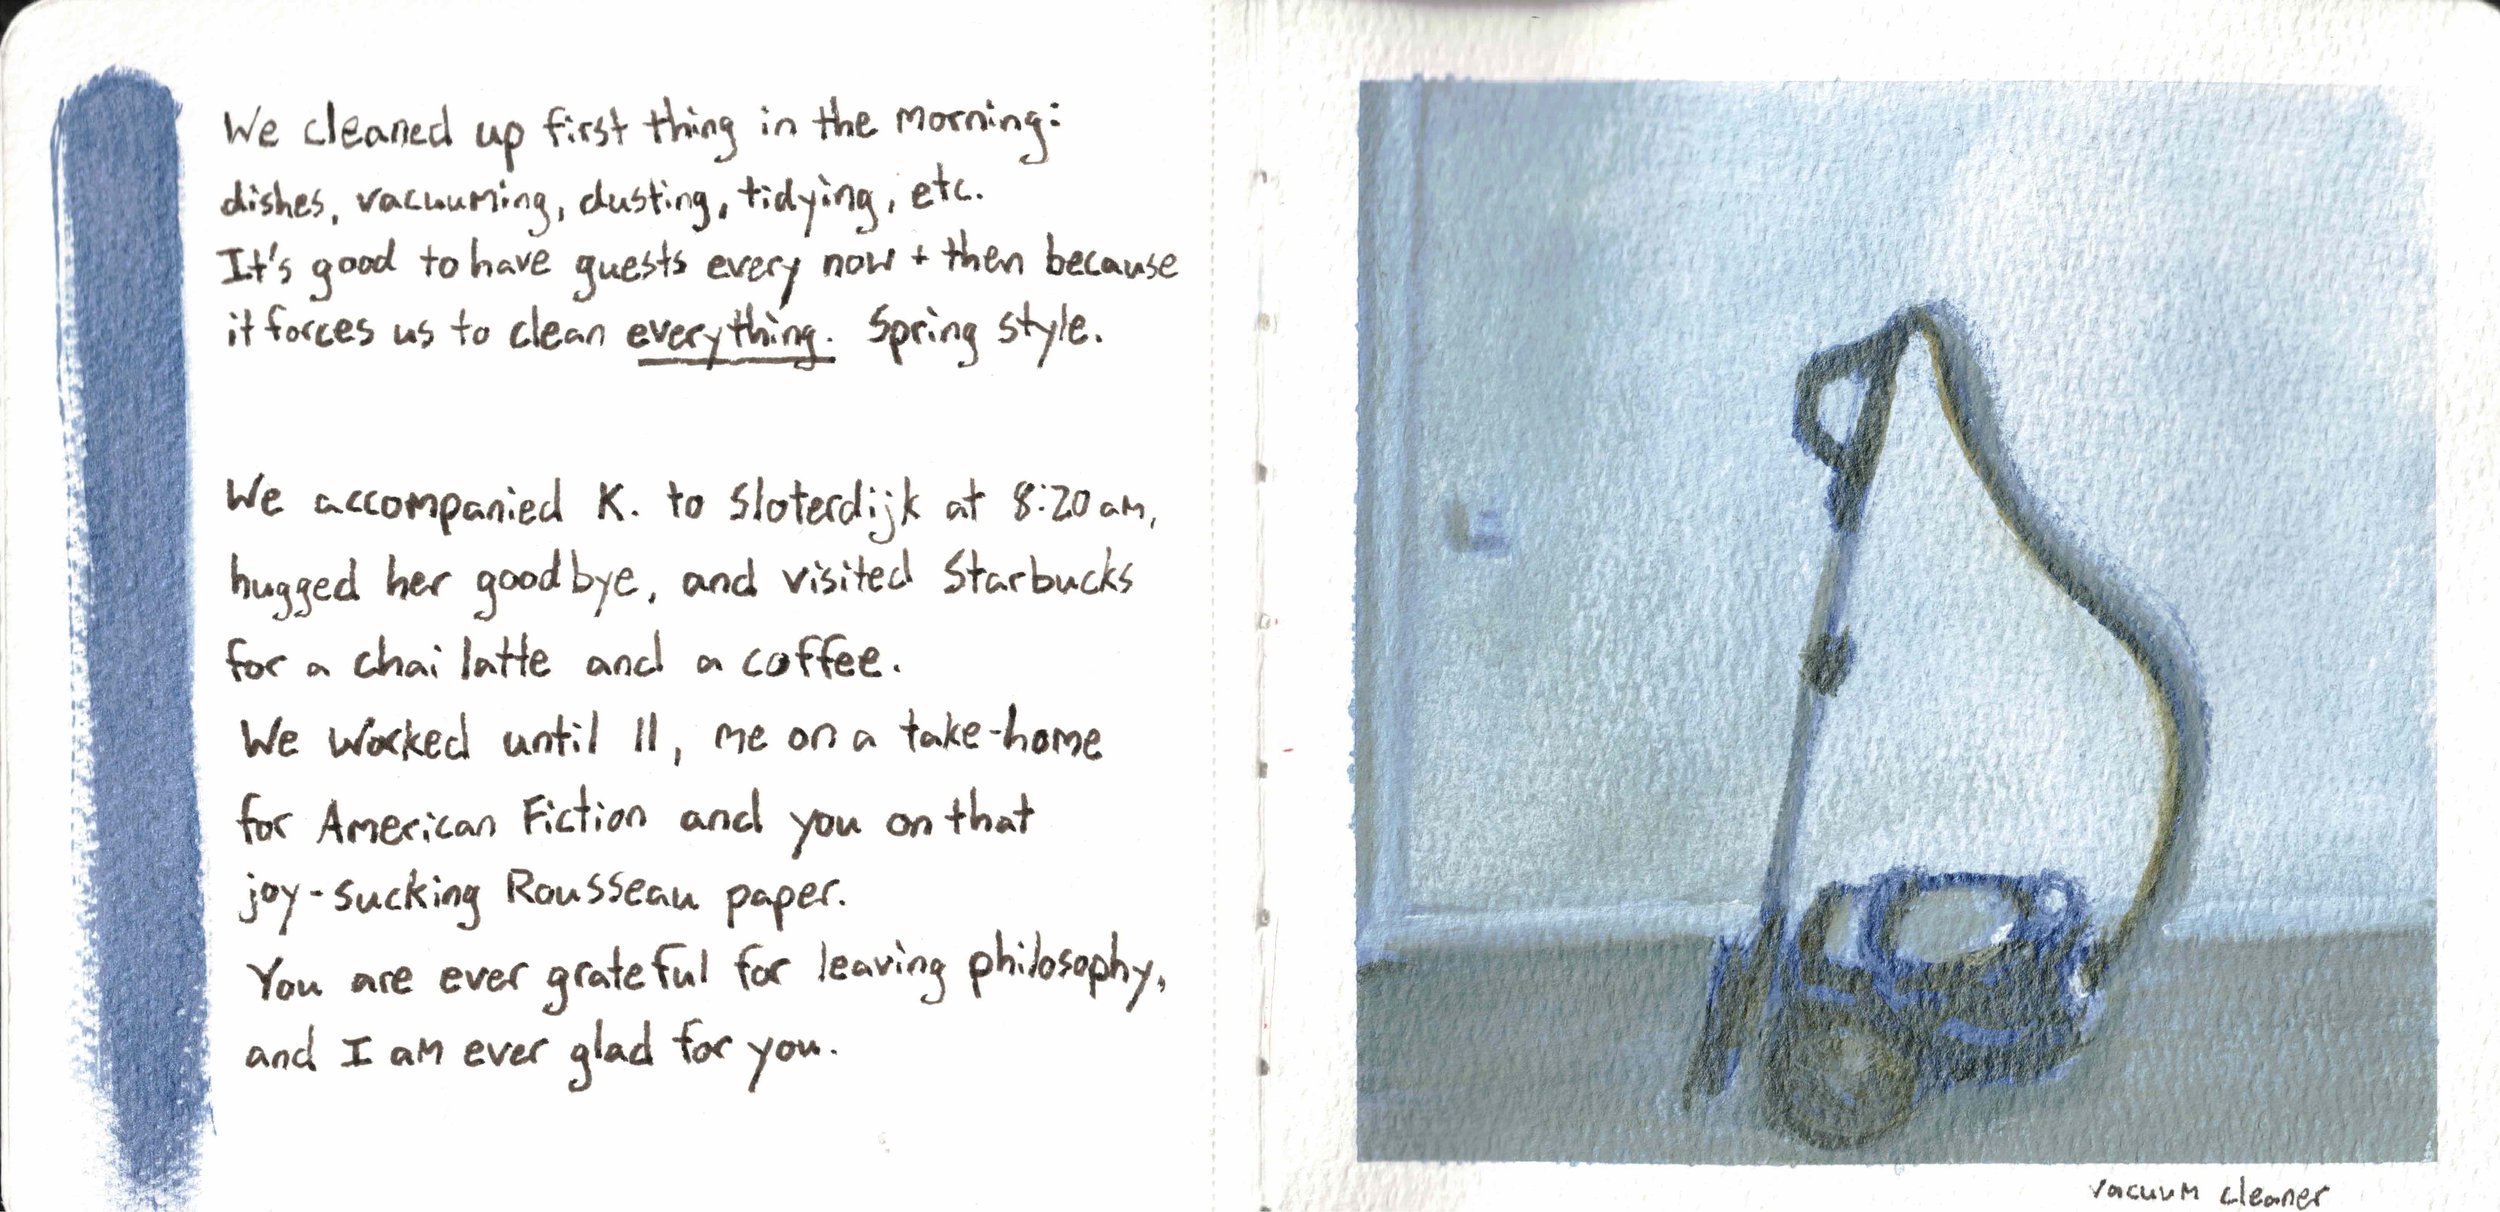 We cleaned up first thing in the morning:
dishes, vacuuming, dusting, tidying, etc.
It's good to have guests every now + then because
it forces us to clean everything. Spring style.
We accompanied K. to Sloterdijk at 8:20 am,
hugged her goodbye, and visited Starbucks
for a chai latte and a coffee.
We worked until 11, me on a take-home
for American Fiction and you on that
joy-sucking Rousseau paper.
You are ever grateful for leaving philosophy,
and I am ever glad for you.
vacuum cleaner